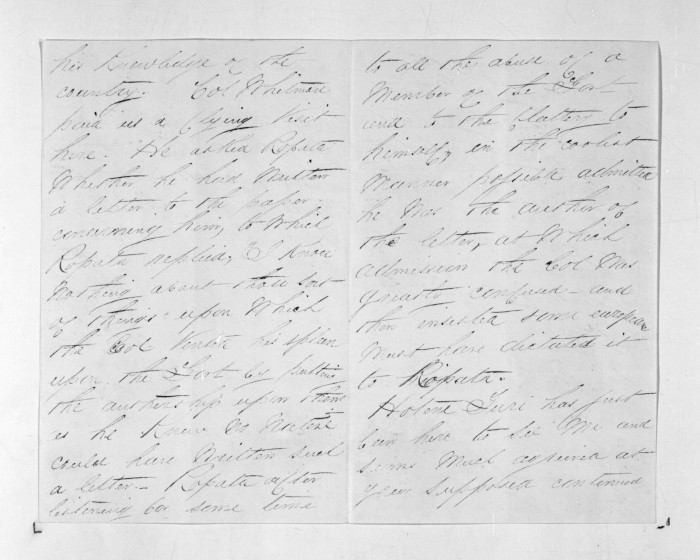 his knowledge of the
country. Col Whitmore
paid us a flying visit
here. He asked Ropata
Whether he had Written
a letter to the paper
concerning him, to Which
Ropata replied, I Know
Nothing about those sort
of things - upon Which
the Col Vented his spleen
upon the Govt by putting
the authorship upon them
as he Knew No Native
could have Written such
a letter - Ropata after
listening for some time
to all the abuse of a
Member of the Govt
and to the flattery to
himself, in the coolest
Manner possible admitted
he Was the author of
the letter, at Which
admission the Col Was
greatly confused - and
then insisted some european
Must have dictated it
to Ropata.
Hotene Turi has just
been here to see Me and
seems Much aggrieved at
your supposed continued